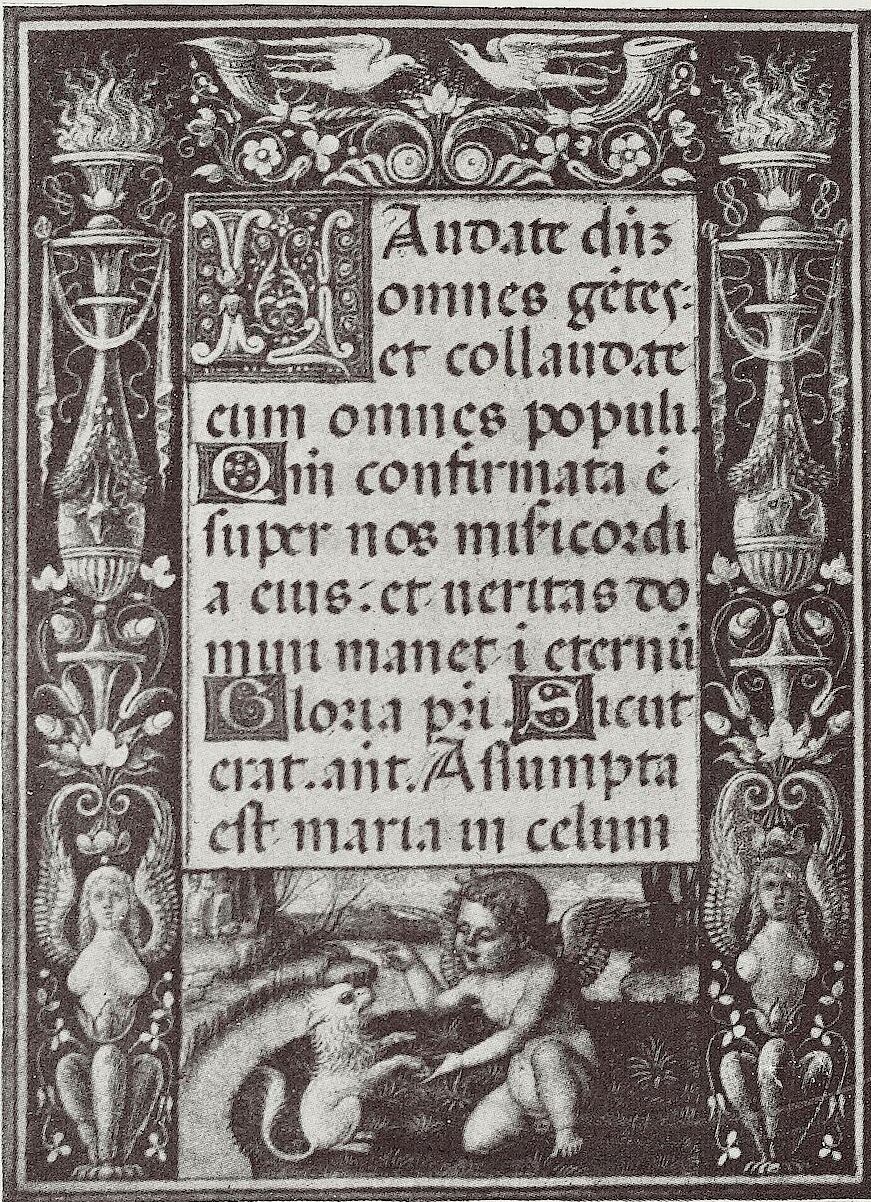 LAudate dn̄ʒ
omnes gētes:
et collaudate
eum omnes populi.
Qm̄ confirmata ē
super nos mis̄icordi
a eius: et ueritas do
mini manet ī eternū
Gloria pr̄i. Sicut
erat. an̄t. Assumpta
est maria in celum